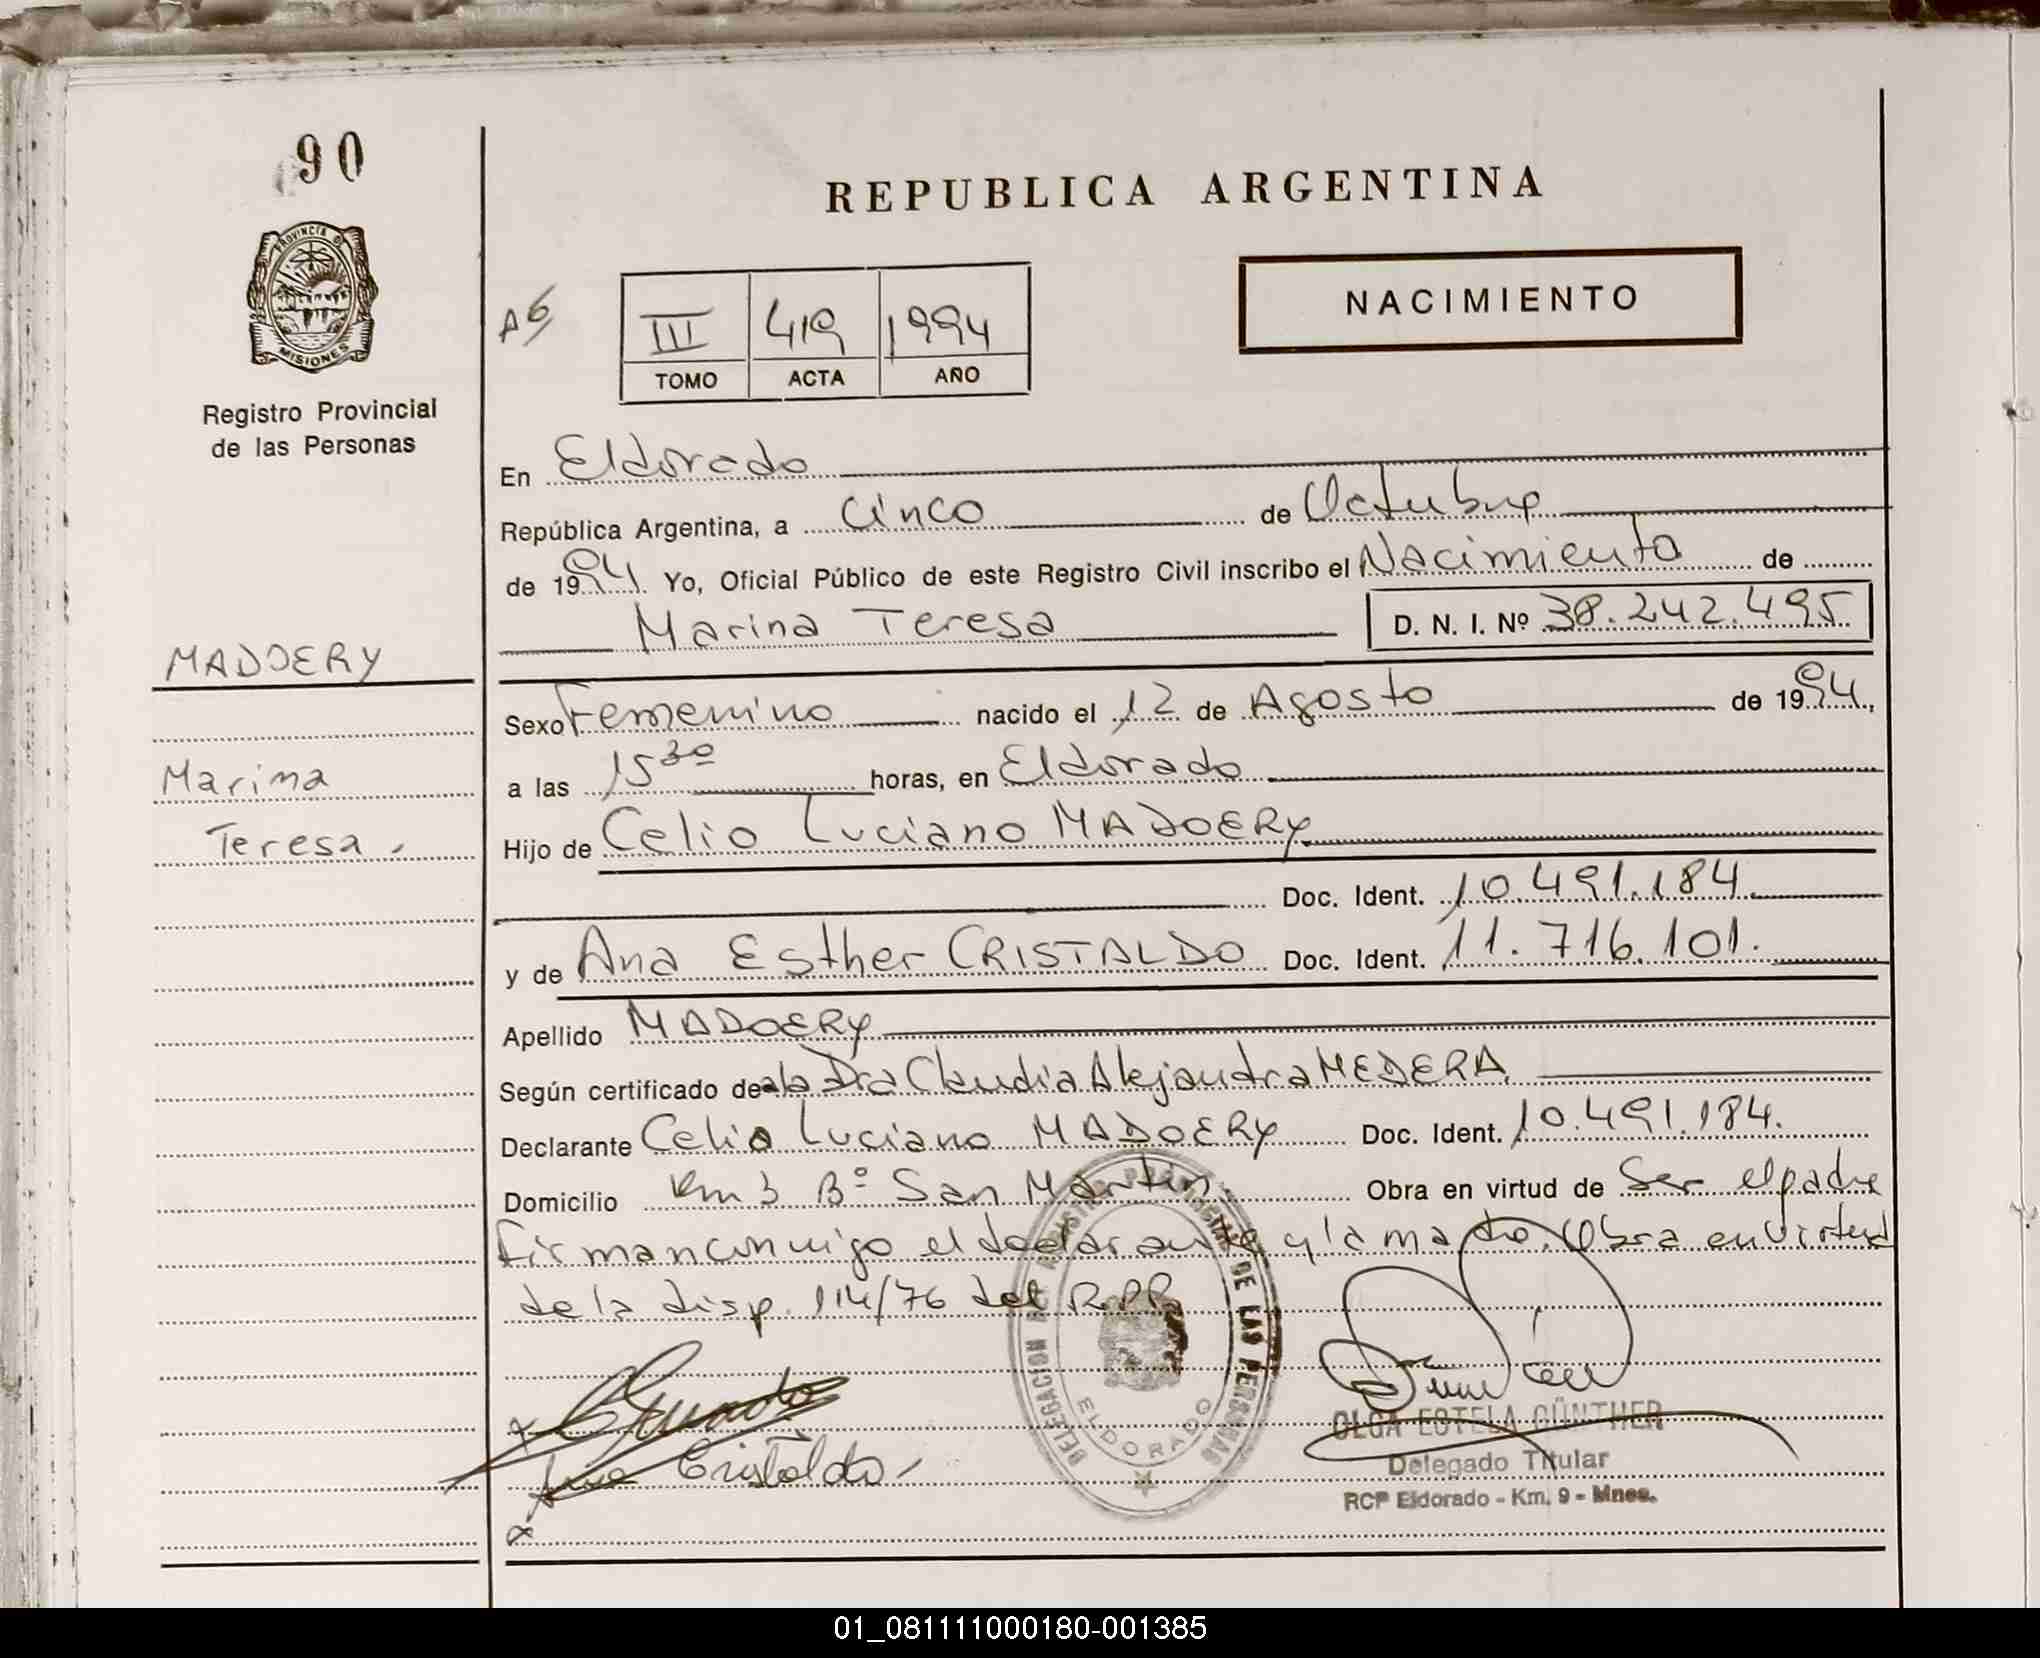 90
REPUBLICA ARGENTINA
PROVINCIA DE
MISIONES
Registro Provincial
de las Personas
A6
III 419 1994
TOMO ACTA AÑO
NACIMIENTO
En Eldorado
República Argentina, a Cinco de Octubre
de 1994 Yo, Oficial Público de este Registro Civil inscribo el Nacimiento de
Marina Teresa D. N. I. Nº 38.242.495
MADOERY
Sexo Femenino nacido el 12 de Agosto de 1994,
Marina
a las 15 30 horas, en Eldorado
Teresa.
Hijo de Celio Luciano MADOERY
Doc. Ident. 10.491.184.
y de Ana Esther CRISTALDO Doc. Ident. 11.716.101.
Apellido MADOERY
Según certificado de la Dra Claudia Alejandra MEDERA.
Declarante Celio Luciano MADOERY Doc. Ident. 10.491.184.
Domicilio Km 3 Bº San Martin. Obra en virtud de Ser el padre
firman conmigo el declarante y la madre. Obra en virtud
de la disp. 114/76 del RPP
REGISTRO PROVINCIAL DE LAS PERSONAS
DELEGACION
ELDORADO
Ana Cristaldo
OLGA ESTELA GÜNTHER
Delegado Titular
RCP Eldorado - Km. 9 - Mnes.
01_081111000180-001385